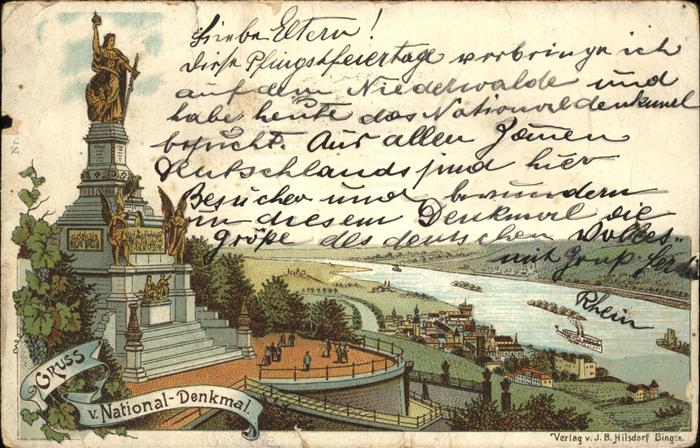 Liebe Eltern!
Diese Pfingstfeiertage verbringe ich
auf dem Niederwalde und
habe heute das Nationaldenkmal
besucht. Aus allen
Deutschlands sind hier
Besucher und bewundern
in diesem Denkmal die
Größe des deutschen Volkes
mit Gruß
Rhein
GRUSS
v. National-Denkmal.
Verlag v. J. B. Hilsdorf Bingen.